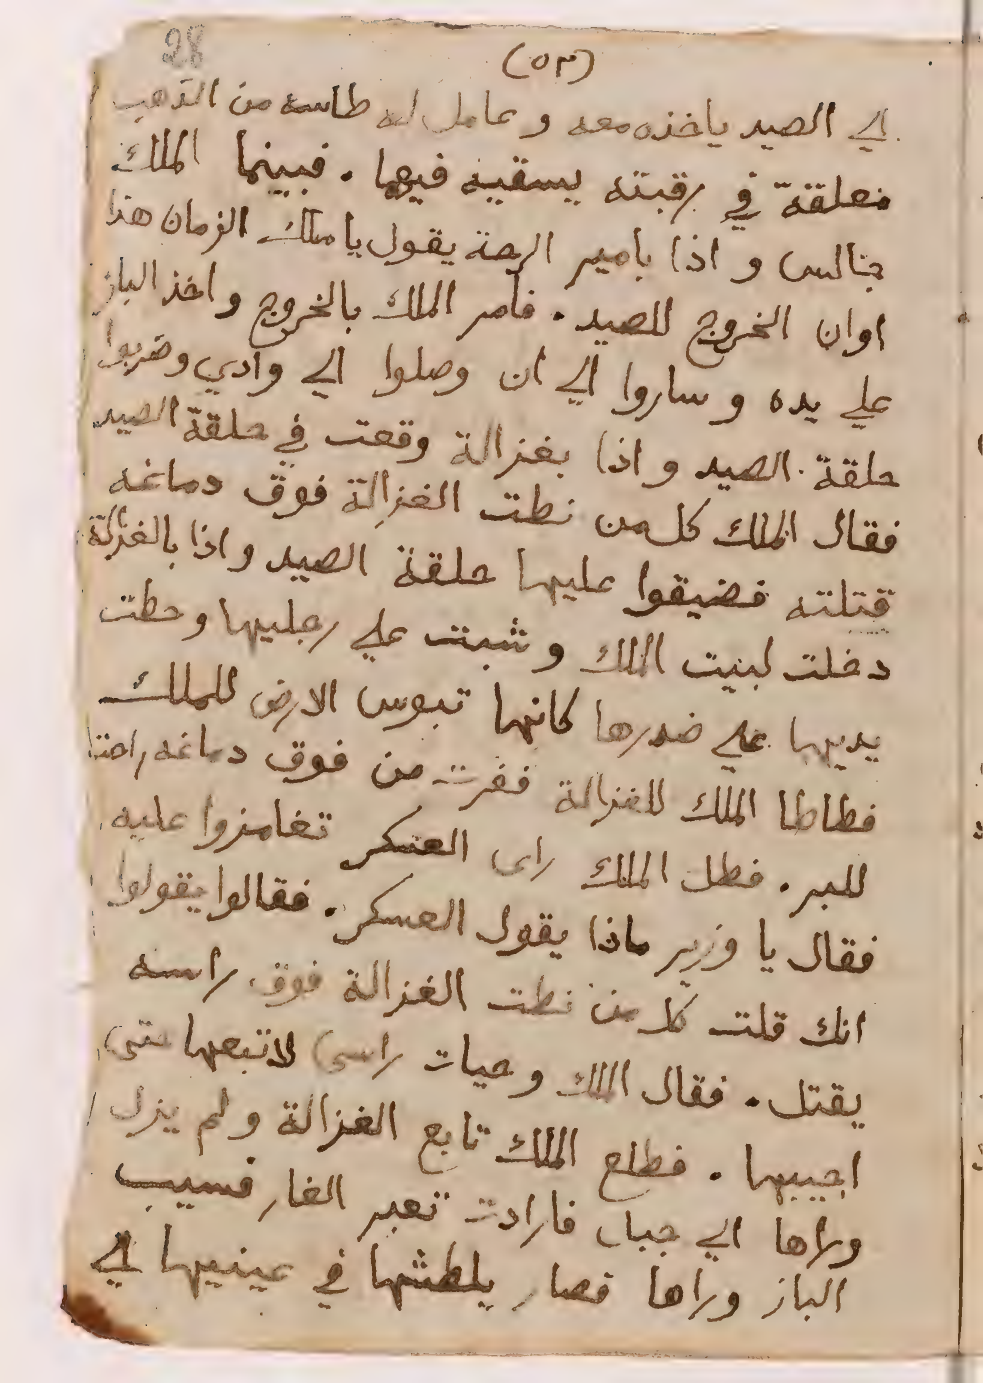 28
(٥٣)
الي الصيد ياخذه معه و عامل له طاسه من الذهب
معلقة في رقبته يسقيه فيها . فبينما الملك
جالس و اذا بامير الرحة يقول يا ملك الزمان هذا
اوان الخروج للصيد . فامر الملك بالخروج واخذ الباز
علي يده و ساروا الي ان وصلوا الي وادي وضربوا
حلقة الصيد و اذا بغزالة وقعت في حلقة الصيد
فقال الملك كل من نطت الغزالة فوق دماغه
قتلته فضيقوا عليها حلقة الصيد واذا بالغزالة
دخلت لبيت الملك و شبت علي رجليها وحطت
يديها علي صدرها كانها تبوس الارض للملك
فطاطا الملك للغزالة ففرت من فوق دماغه راحت
للبر . فطل الملك راى العسكر تغامزوا عليه
فقال يا وزير ماذا يقول العسكر . فقالوا يقولوا
انك قلت كل من نطت الغزالة فوق راسه
يقتل . فقال الملك وحيات راسي لاتبعها حتى
اجيبها . فطلع الملك تابع الغزالة ولم يزل
وراها الي جبال فارادت تعبر الغار فسيب
الباز وراها فصار يلطشها في عينيها الي